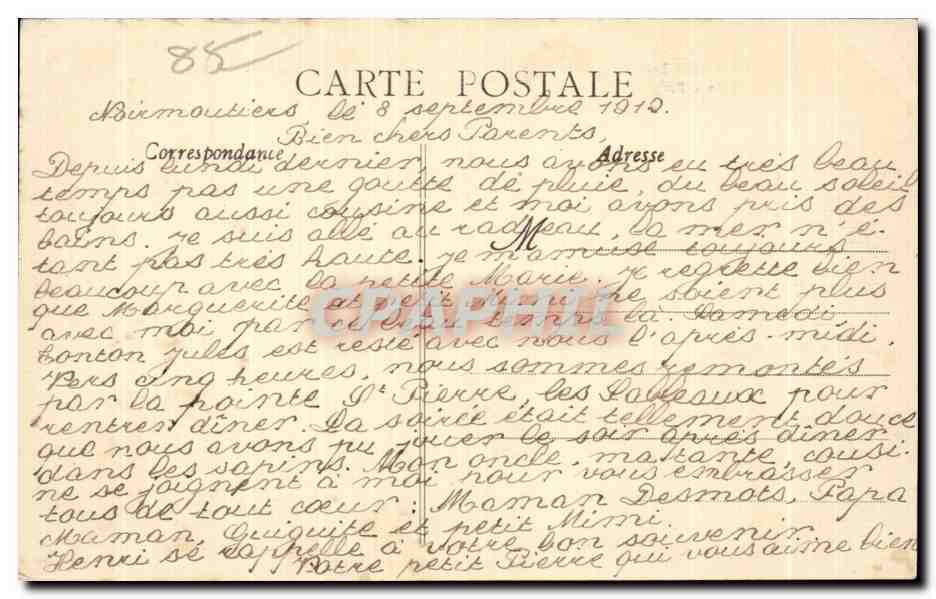 85
CARTE POSTALE
Noirmoutiers le 8 septembre 1912.
Bien chers Parents,
Correspondance
Adresse
Depuis lundi dernier, nous avons eu très beau
temps pas une goutte de pluie, du beau soleil
toujours aussi cousine et moi avons pris des
bains. Je suis allé au radeau, la mer n'é-
M
tant pas très haute. Je m'amuse toujours
beaucoup avec la petite Marie. Je regrette bien
que Marguerite et petit Mimi ne soient plus
avec moi par ce beau temps là. Samedi,
tonton Jules est resté avec nous l'après-midi.
Vers cinq heures, nous sommes remontés
par la pointe St Pierre, les Sableaux pour
rentrer dîner. La soirée était tellement douce
que nous avons pu jouer le soir après dîner
dans les sapins. Mon oncle ma tante cousi-
ne se joignent à moi pour vous embrasser
tous de tout cœur: Maman Desmots, Papa
Maman, Guiguite et petit Mimi.
Henri se rappelle à votre bon souvenir.
Votre petit Pierre qui vous aime bien
CPAPHIL